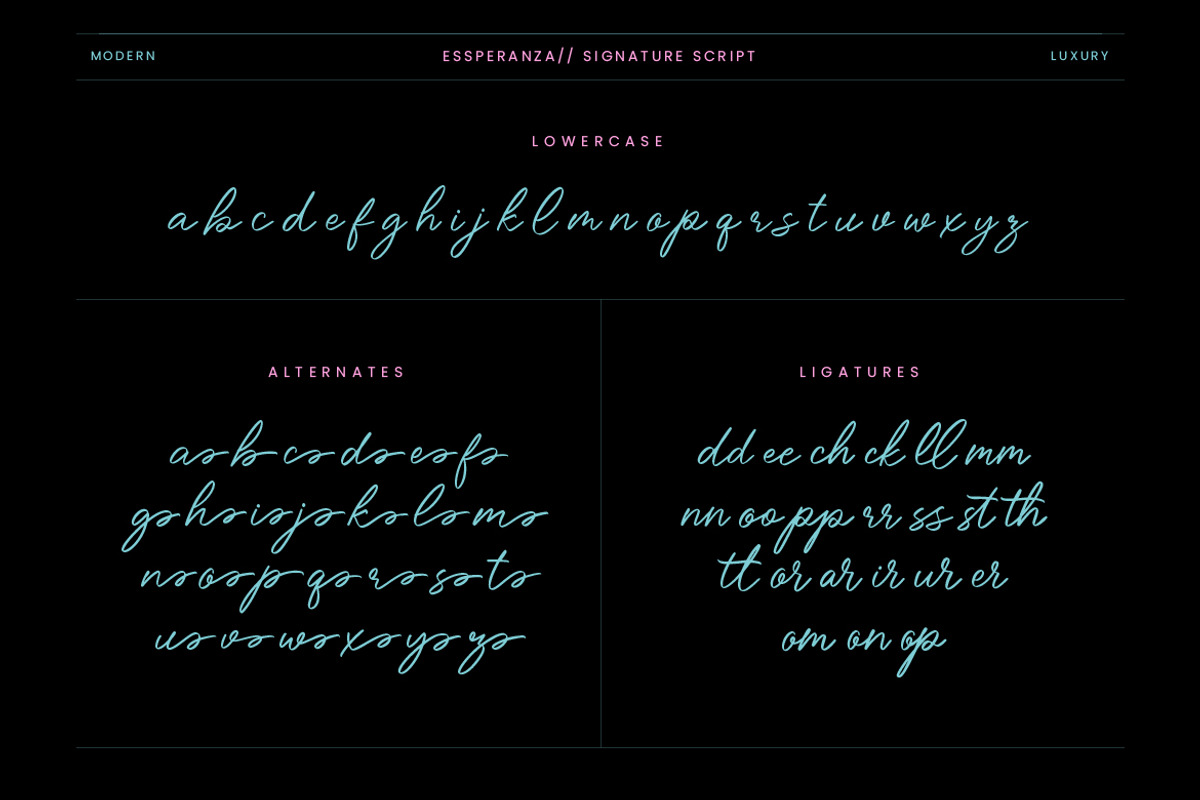 MODERN
ESSPERANZA// SIGNATURE SCRIPT
LUXURY
LOWERCASE
a b c d e f g h i j k l m n o p q r s t u v w x y z
ALTERNATES
a b c d e f
g h i j k l m
n o p q r s t
u v w x y z
LIGATURES
dd ee ch ck ll mm
nn oo pp rr ss st th
tt or ar ir ur er
om on op